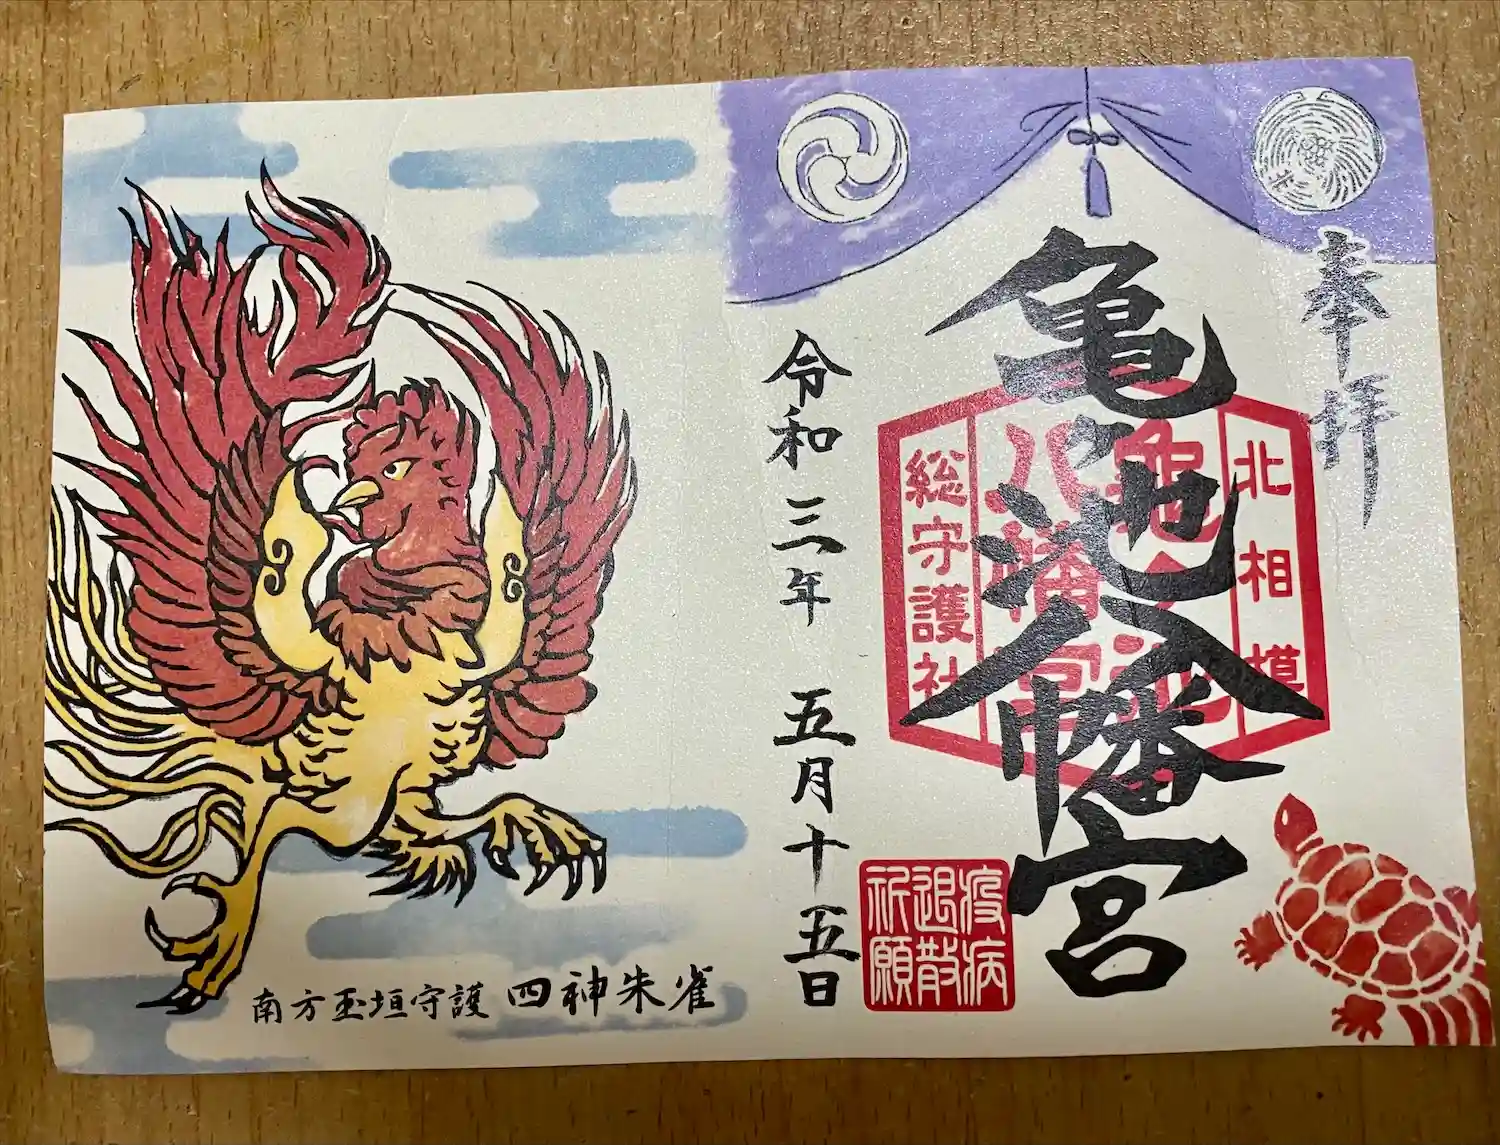 奉拝
亀ヶ池八幡宮
北相模
亀ヶ池
八幡宮
総守護社
疫病
退散
祈願
令和三年 五月十五日
南方玉垣守護 四神朱雀